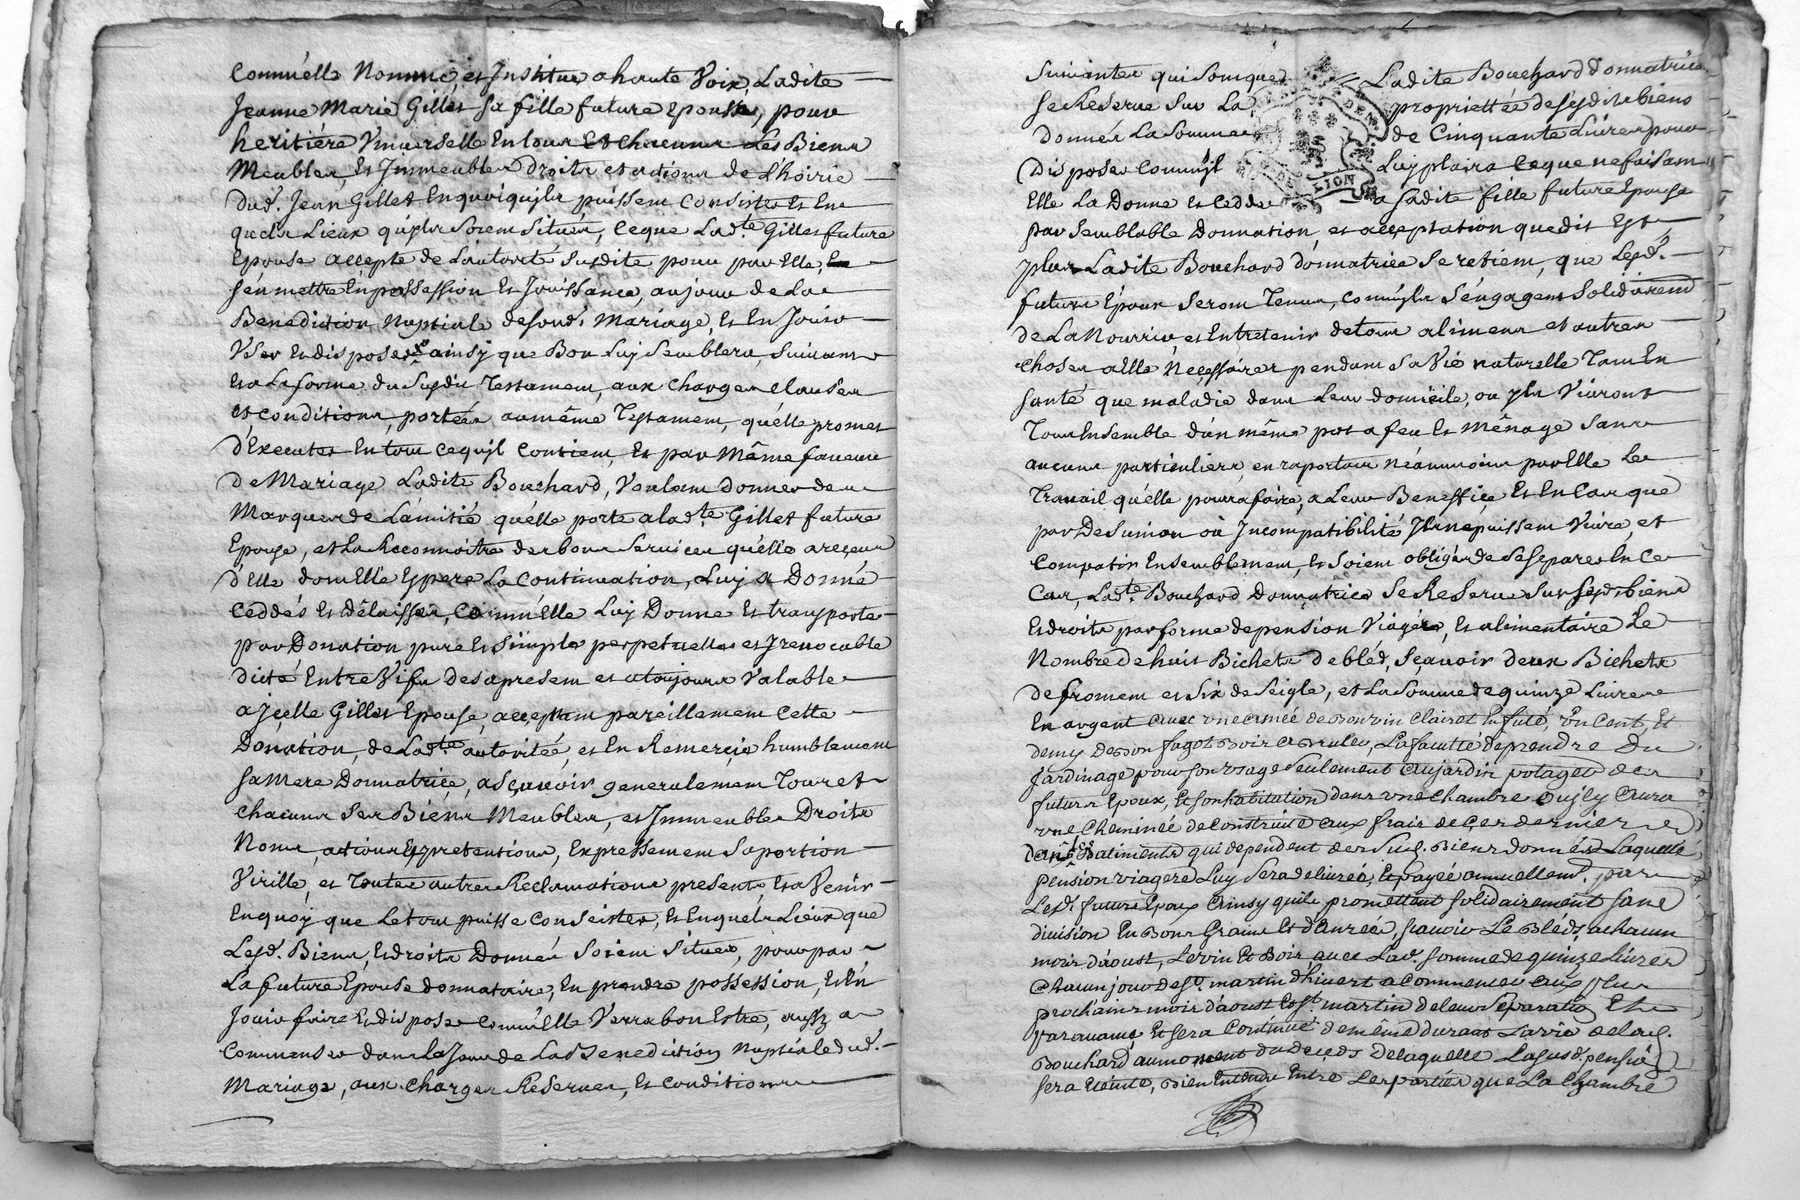 Comm'elle Nomme, et Institue a haute Voix, Ladite
Jeanne Marie Gillet sa fille future Epouse, pour
heritiére Vniverselle En tous Et chacuns Les Biens
Meubles, Et Immeubles droits et actions de L'hoirie
dud. Jean Gillet En quoi quils puissent Consister Et En
quels Lieux quils Soient Situés, Ceque Lad.te Gillet future
Epouse accepte de L'autorité Susdite pour par Elle,
s'en mettre En possession Et Jouissance, au jour de La
Benediction Nuptiale desond. Mariage, Et En Jouir
Vser Et disposer ainsy que Bon Luy Semblera, Suivant
Et a La forme du Susdit Testament, aux charges clauses
et conditions, portées au même Testament, qu'elle promet
d'Executer En tout cequ'il Contient, Et par Même faveur
de Mariage Ladite Bouchard, Voulant donner des
Marques de L'amitié qu'elle porte a lad.te Gillet future
Epouse, et La Reconnoitre des bons Services qu'elle a reçeus
d'Elle dont Elle Espere La Continuation, Luy a Donné
Ceddés Et délaisser, Comm'elle Luy Donne Et transporte
par Donation pure Et simple perpetuelle et Irrevocable
dicté Entre Vifs des apresent et a toujours Valable
a Jcelle Gillet Epouse, acceptant pareillement Cette
Donation, de Lad.te autoritéé, et En Remerçie humblement
sa Mere Donnatriçe, a Sçavoir generalement Tous et
chacuns Ses Biens Meubles, et Immeubles Droits
Noms, actions Et pretentions, Expressement Sa portion
Virille, et Toutes autres Reclamations presents, Et a Venir
En quoy que Le tout puisse Conseister, Et En quels Lieux que
Lesd. Biens, Et droits Donnés Soient Situés, pour par
La future Epouse donnataire, En prendre possession, Et En
Jouir faire Et disposer Comm'elle Verra bon Estre, aussy a
Commenser dans Le Jour de La Benediction Nuptiale dud.
Mariage, aux charges Reserves, Et Conditions
Suivantes qui Sont que Ladite Bouchard donnatrice
se Reserve Sur La propriettée desdits biens
donnés La Somme de Cinquante Livres pour
Disposer Comm'il Luy plaira Ceque ne faisant
Elle La Donne et Cedde a sadite fille future Epouse
par Semblable Donnation, et acceptation que dit Est
plus Ladite Bouchard donnatrice Se retient, que Lesd.
futurs Epoux Seront Tenus, Comm'ils S'engagent Solidairem.t
de La Nourrir, et Entretenir de tous aliments et autres
choses a Elle Neçessaires pendant Sa Vie naturelle Tant En
santé que maladie dans Leur domicile, ou ils Vivront
Tous Ensemble d'un même pot a feu Et Ménage Sans
aucuns particuliers, en raportant Néanmoins par Elle Le
Travail qu'elle pourra faire, a Leur Beneffice, Et En Cas que
par Desunion ou Incompatibilité Ils ne puissent Vivre, et
Compatir Ensemblement, Et Soient obligés de Se Separer En Ce
Cas, Lad.te Bouchard Donnatrice Se Reserve Sur Sesd. biens
Et droits par forme de pension Viagére, Et alimentaire Le
Nombre de huit Bichets de bled, Scavoir deux Bichets
de froment et Six de Seigle, et La Somme de quinze Livres
En argent avec vne annéé de bon vin Clairet En futé, Un Cent, Et
demy De bon fagot Bois a bruler, La faculté de prendre Du
Jardinage pour son vsage Seulement au Jardin potager des
futurs Epoux, Et son habitation dans vne chambre ou il y aura
vne Cheminéé de Construite aux frais de Çes derniers
dans les Batiments qui dependent des Susd. Biens donnés Laquelle
pension viagere Luy Sera delivréé, Et payéé annuellem.t par
Lesd. futurs Epoux ainsy qu'ils promettent Solidairement sans
division En Bons Grains Et danréés, scavoir Le Bled, a chacun
mois d'aoust, Le vin Et Bois avec Lad. somme de quinze Livres
a chacun jour de S.t martin d'hivert a Commencer aux plus
prochains mois d'aoust Et S.t martin de Leur Separation Et
paravant Et Sera Continué de même Durant La vie de Lad.
Bouchard au moment du deceds De laquelle La susd. pension
sera Eteinte, Bien Entendu Entre Les parties que La Chambre